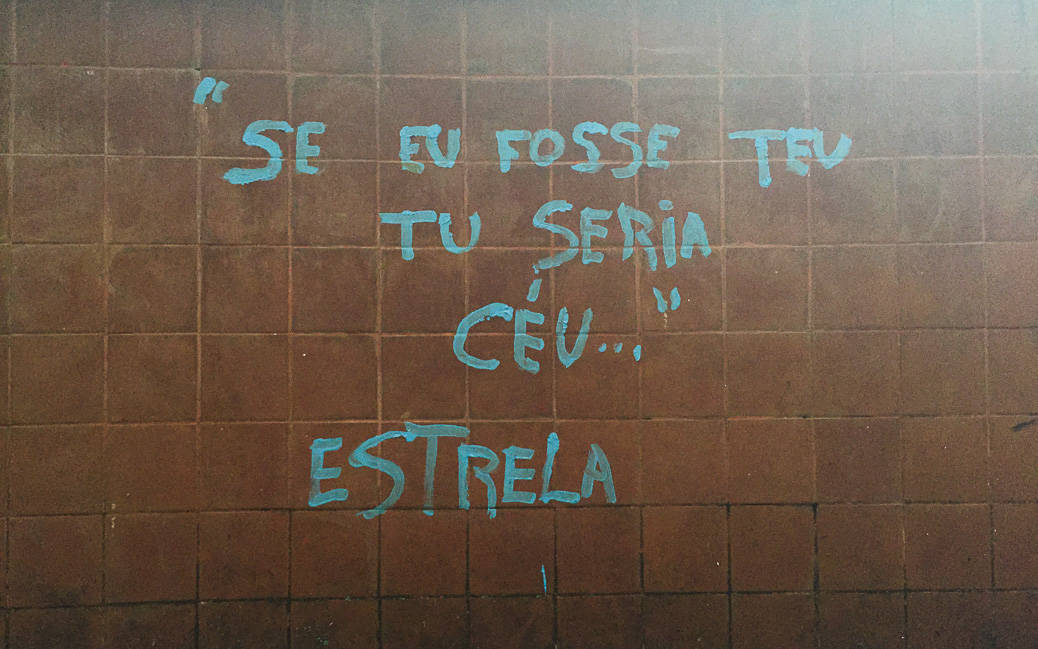 "SE EU FOSSE TEU
TU SERiA
CÉU..."
ESTRELA